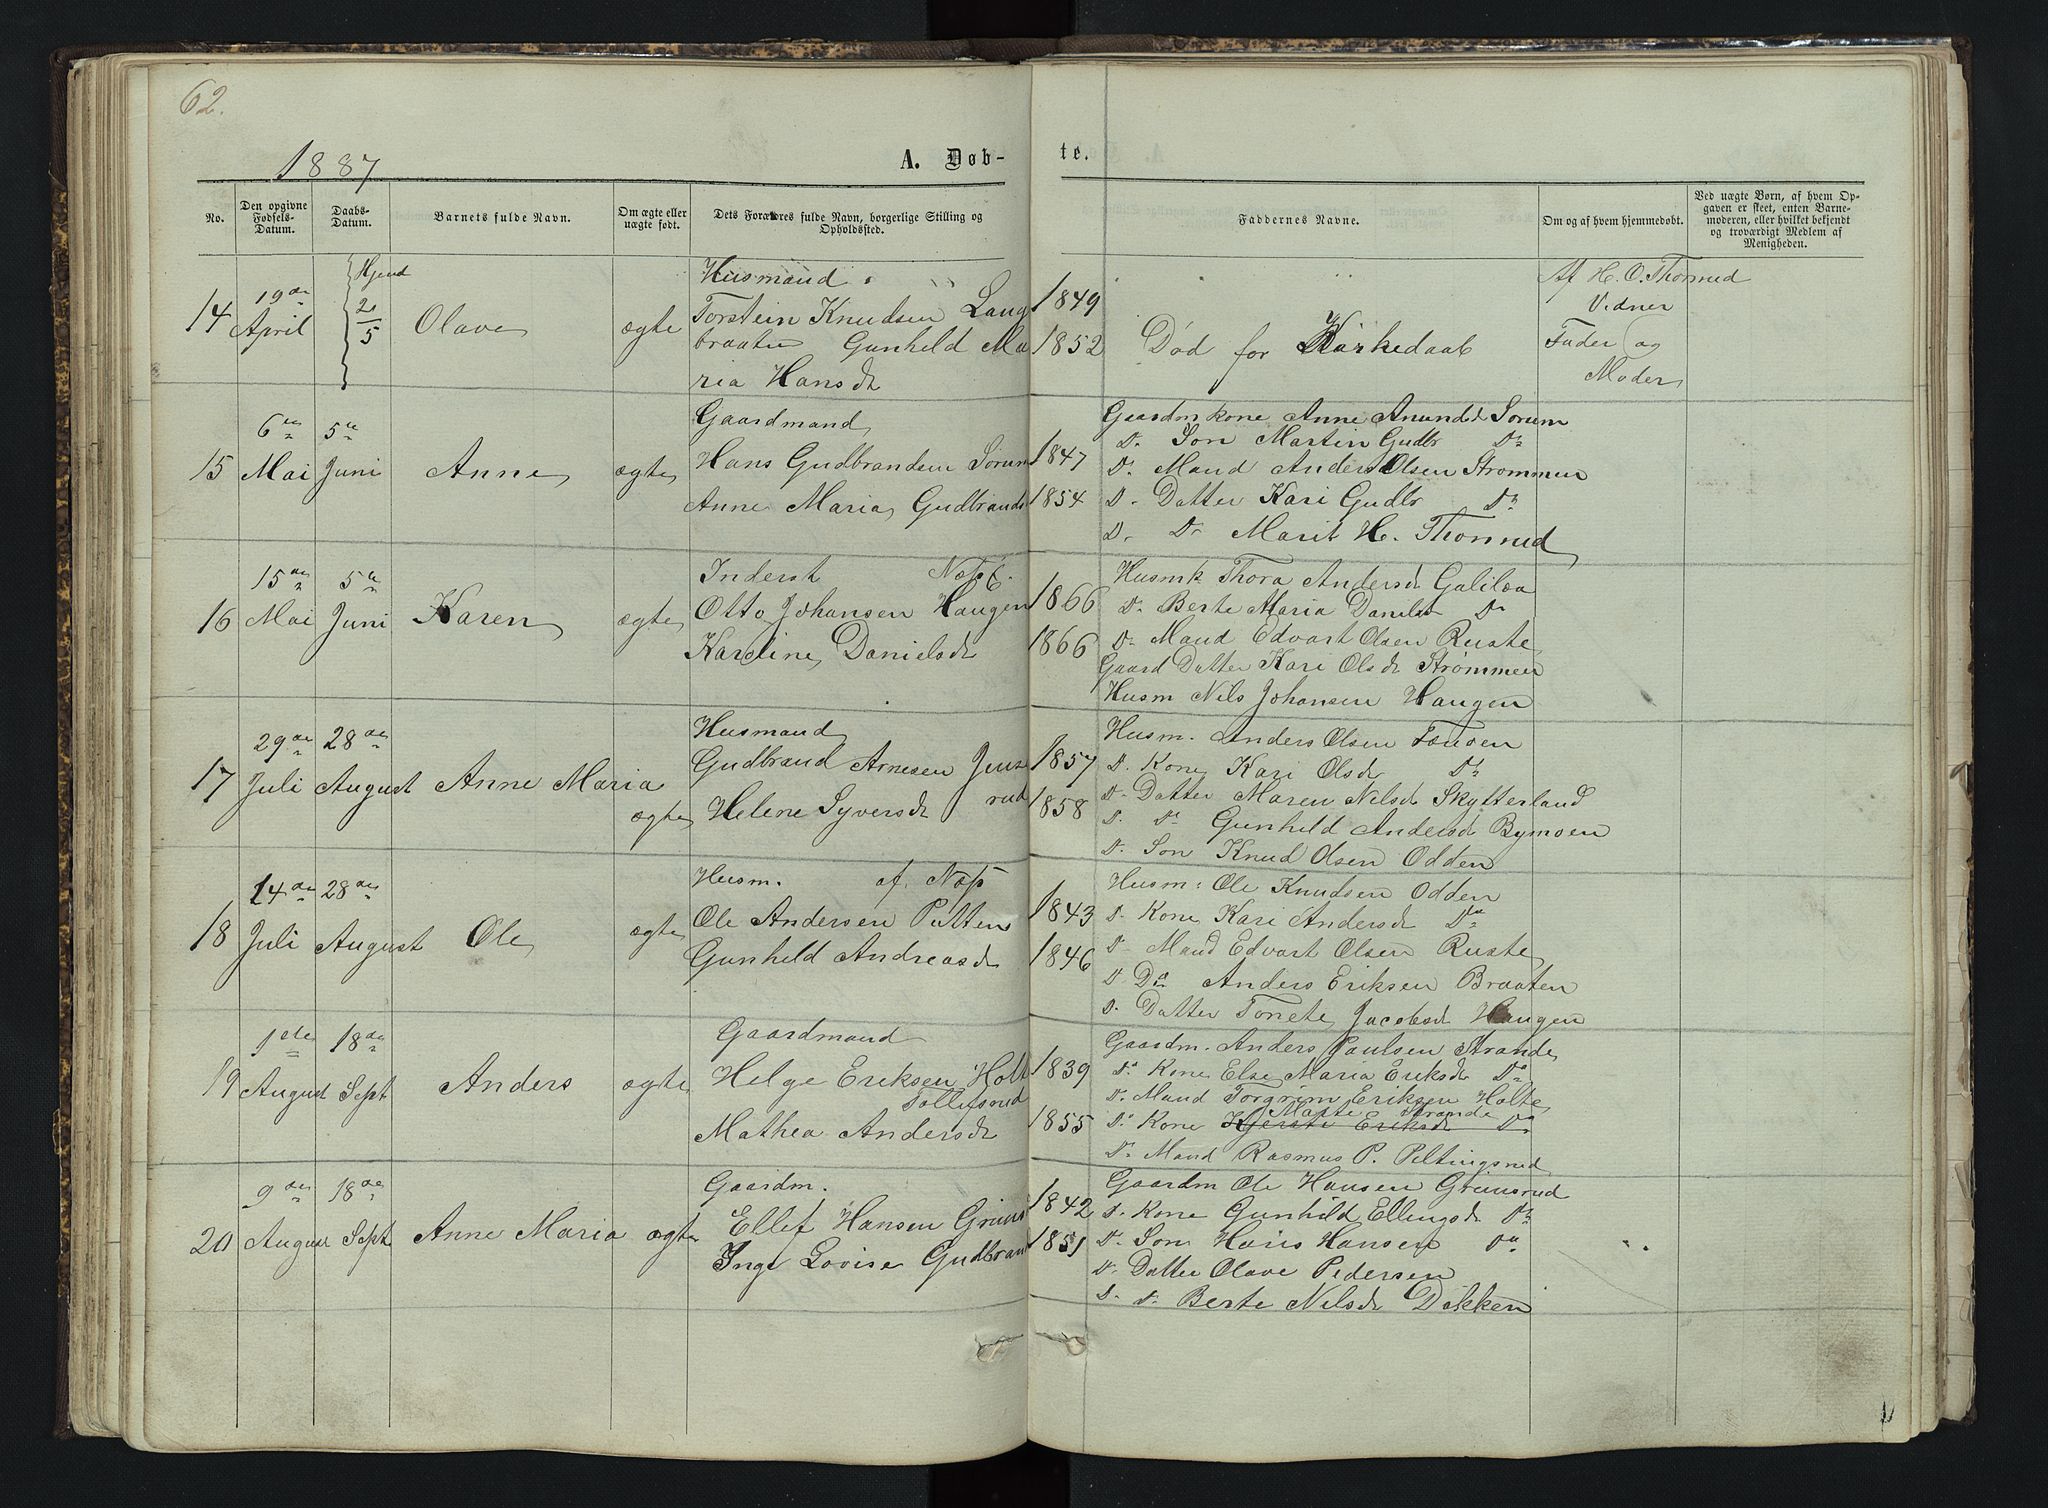 62.
1887
A. Døb-
te.
No.
Den opgivne Fødsels-Datum.
Daabs-Datum.
Barnets fulde Navn.
Om ægte eller uægte født.
Dets Forældres fulde Navn, borgerlige Stilling og Opholdssted.
Faddernes Navne.
Om og af hvem hjemmedøbt.
Ved uægte Børn, af hvem Opgaven er skeet, enten Barnemoderen, eller hvilket bekjendt og troværdigt Medlem af Menigheden.
14
19de April
Hjemd 2/5
Olave
ægte
Husmand
Torstein Knudsen Laug
braaten Gunhild Ma
ria Hansd
1849
1852
Død for Kirkedaab
Af H. O. Thorrud
Vidner
Fader og
Moder
15
6te Mai
5te Juni
Anne
ægte
Gaardmand
Hans Gudbrandsen Sorum
Anne Maria Gudbrands
1847
1854
Gaardm kone Anne Amundsd Sorum
Do Søn Martin Gudbr Do
Do Mand Anders Olsen Strømmen
Do Datter Kari Gudbr Do
Do Do Marit H. Thorrud
16
15de Mai
5te Juni
Karen
ægte
Inderst
Otto Johansen Haugen
Karoline Danielsd
1866
1866
Husmk Thora Andersd Galiloa
Do Berte Maria Danielsd Do
Do Mand Edvart Olsen Ruste
Gaard Datter Kari Olsd Strømmen
Husm Nils Johansen Haugen
17
29de Juli
28de August
Anne Maria
ægte
Husmand
Gudbrand Arnesen Jens
rud
Helene Syversd
1857
1858
Husm. Anders Olsen
Do Kone Kari Olsd Do
Do Datter Maren Nilsd Skytterland
Do Do Gunhild Andersd Bymoen
Do Søn Knud Olsen Odden
18
14de Juli
28de August
Ole
ægte
Husm. af Næs
Ole Andersen Putten
Gunhild Andreasd
1843
1846
Husm: Ole Knudsen Odden
Do Kone Kari Andersd Do
Do Mand Edvart Olsen Ruste
Do Do Anders Eriksen Braaten
Do Datter Tonete Jacobsd Haugen
19
1ste August
18de Sept
Anders
ægte
Gaardmand
Helge Eriksen Holt
Tollefsrud
Mathea Andersd
1839
1855
Gaardm. Anders Paulsen Strande
Do Kone Else Maria Eriksd Do
Do Mand Torgrim Eriksen Holte
Marte Strande
Do Kone Kjerste Eriksd Do
Do Mand Rasmus P. Peltingsrud
20
9de August
18de Sept
Anne Maria
ægte
Gaardm.
Ellef Hansen Grims
Inge Lovise Gudbran
1842
1851
Gaardm Ole Hansen Grimsrud
Do Kone Gunhild Ellingsd Do
Do Søn Hans Hansen Do
Do Datter Olave Pedersen
Do Do Berte Nilsd Dokken